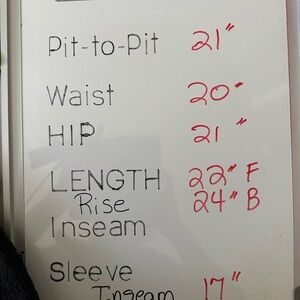 Pit-to-Pit 21"
Waist 20"
HIP 21"
LENGTH 22" F
Rise 24" B
Inseam
Sleeve
Inseam 17"